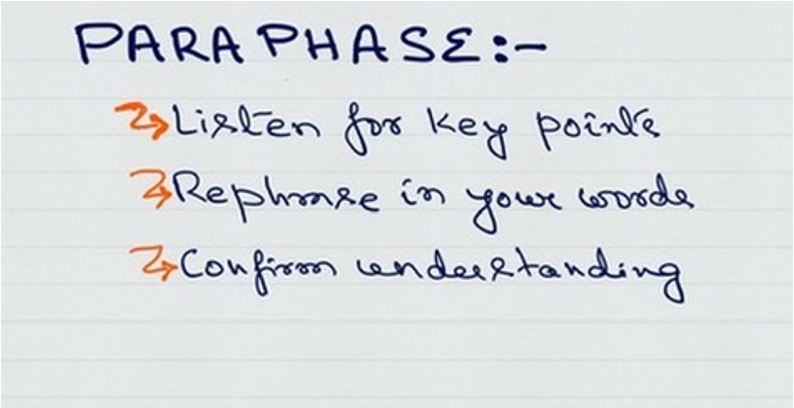 PARAPHASE:-
Listen for key points
Rephrase in your words
Confirm understanding